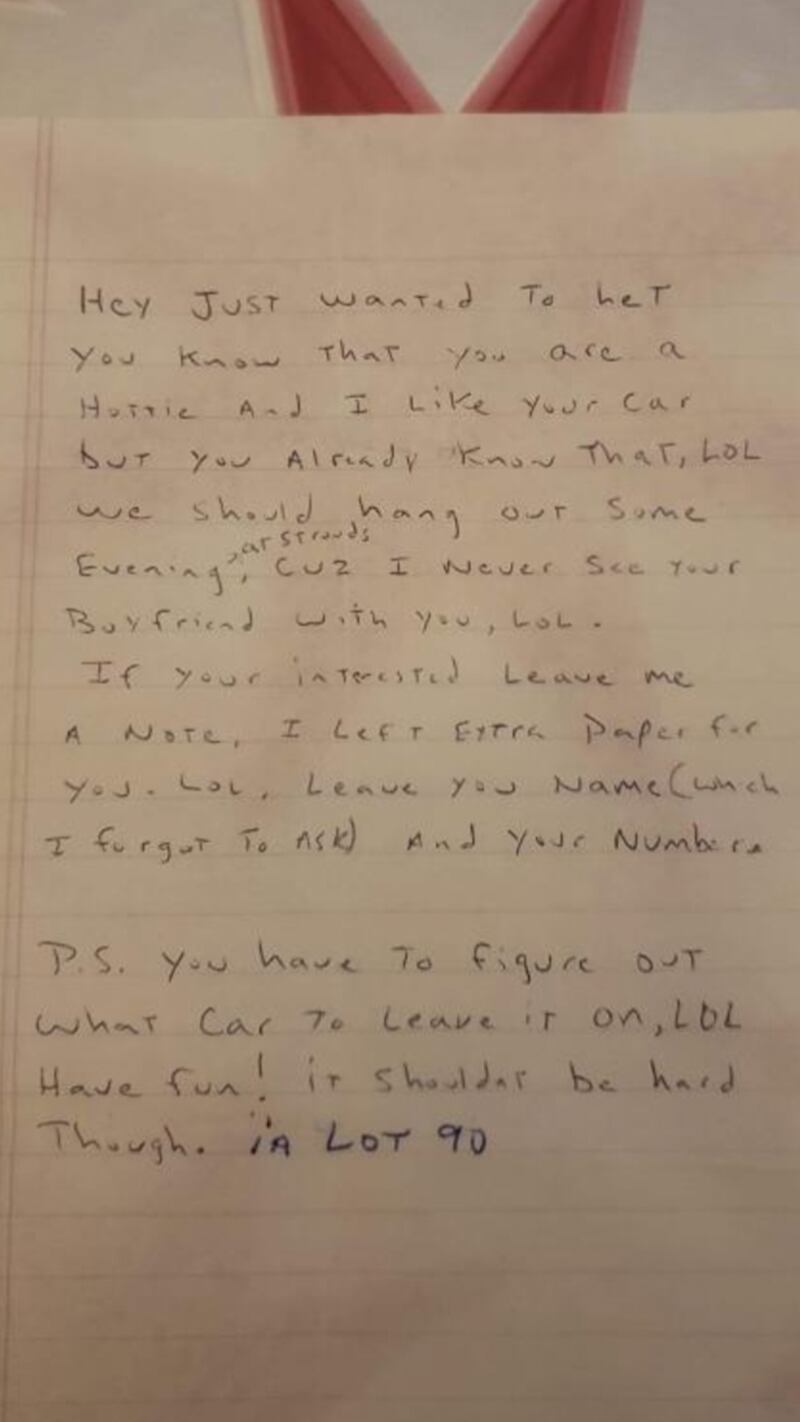 Hey Just wanted To heT
you know that you are a
Hottie And I Like your Car
but you Already know That, LOL
we should hang out some
, at strouds
Evening, cuz I Never see your
Boyfriend with you, LoL.
If your interested Leave me
A Note, I Left Extra Paper for
you. LoL. Leave you Name (which
I forgot To Ask) And your Numbers
P.S. you have To figure out
what Car To Leave it on, LOL
Have fun! it shouldnt be hard
Though. in LOT 90